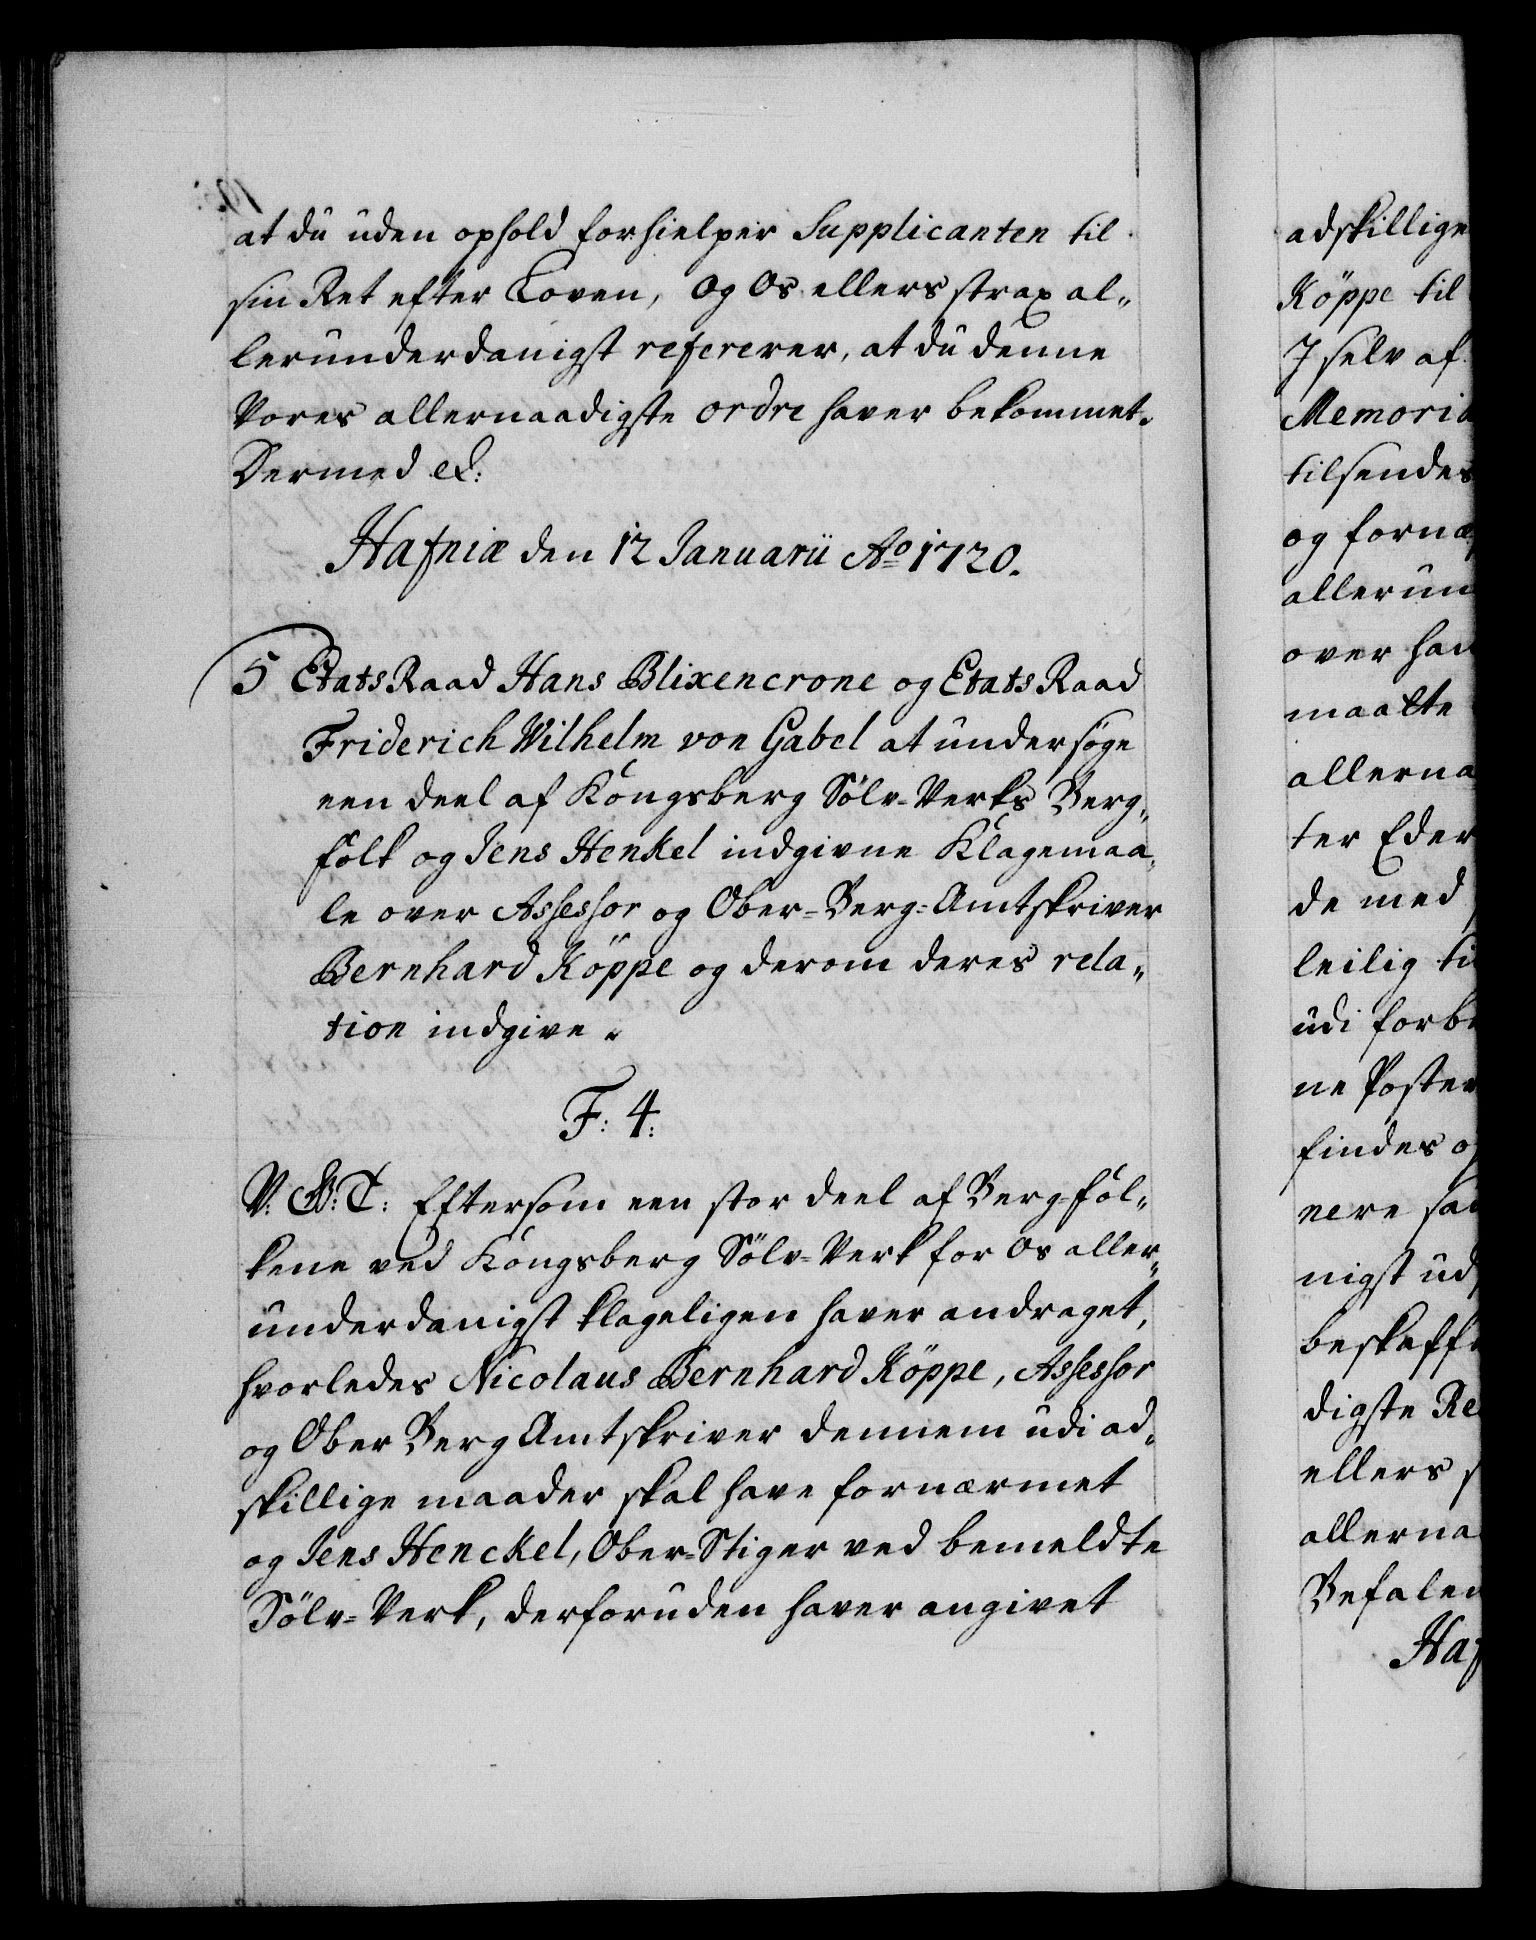 at du uden ophold forhielper Supplicanten til
sin Ret efter Loven, og Os ellers strax al„
lerunderdanigst refererer, at du denne
Vores allernaadigste ordre haver bekommet.
Dermed etc:
Hafniæ den 12 Januarii Ao 1720.
5 Etats Raad Hans Blixencrone og Etats Raad
Friderich Wilhelm von Gabel at undersøge
een deel af Kongsberg Sölv-Verks Berg„
folk og Jens Henkel indgivne Klagemaa„
le over Assessor og Ober-Berg-Amtskriver
Bernhard Köppe og derom deres rela„
tion indgive.
F: 4:
V: G: T: Eftersom een stor deel af Bergfol„
kene ved Kongsberg Sölv-Verk for Os aller„
underdanigst klageligen haver andraget,
hvorledes Nicolaus Bernhard Köppe, Assessor
og Ober Berg Amtskriver dennem udi ad„
skillige maader skal have fornærmet
og Jens Henckel, Ober-Stiger ved bemeldte
Sölv-Verk, derforuden haver angivet
adskillige
Köppe til
I selv af
Memoria
tilsendes
og fornæ
allerun
over han
maatte
allerna
ter Eder
de med
leilig ti
udi forbe
ne Poster
findes o
nere sa
nigst ud
beskaffe
digste Re
ellers s
allerna
Befalen
Haf